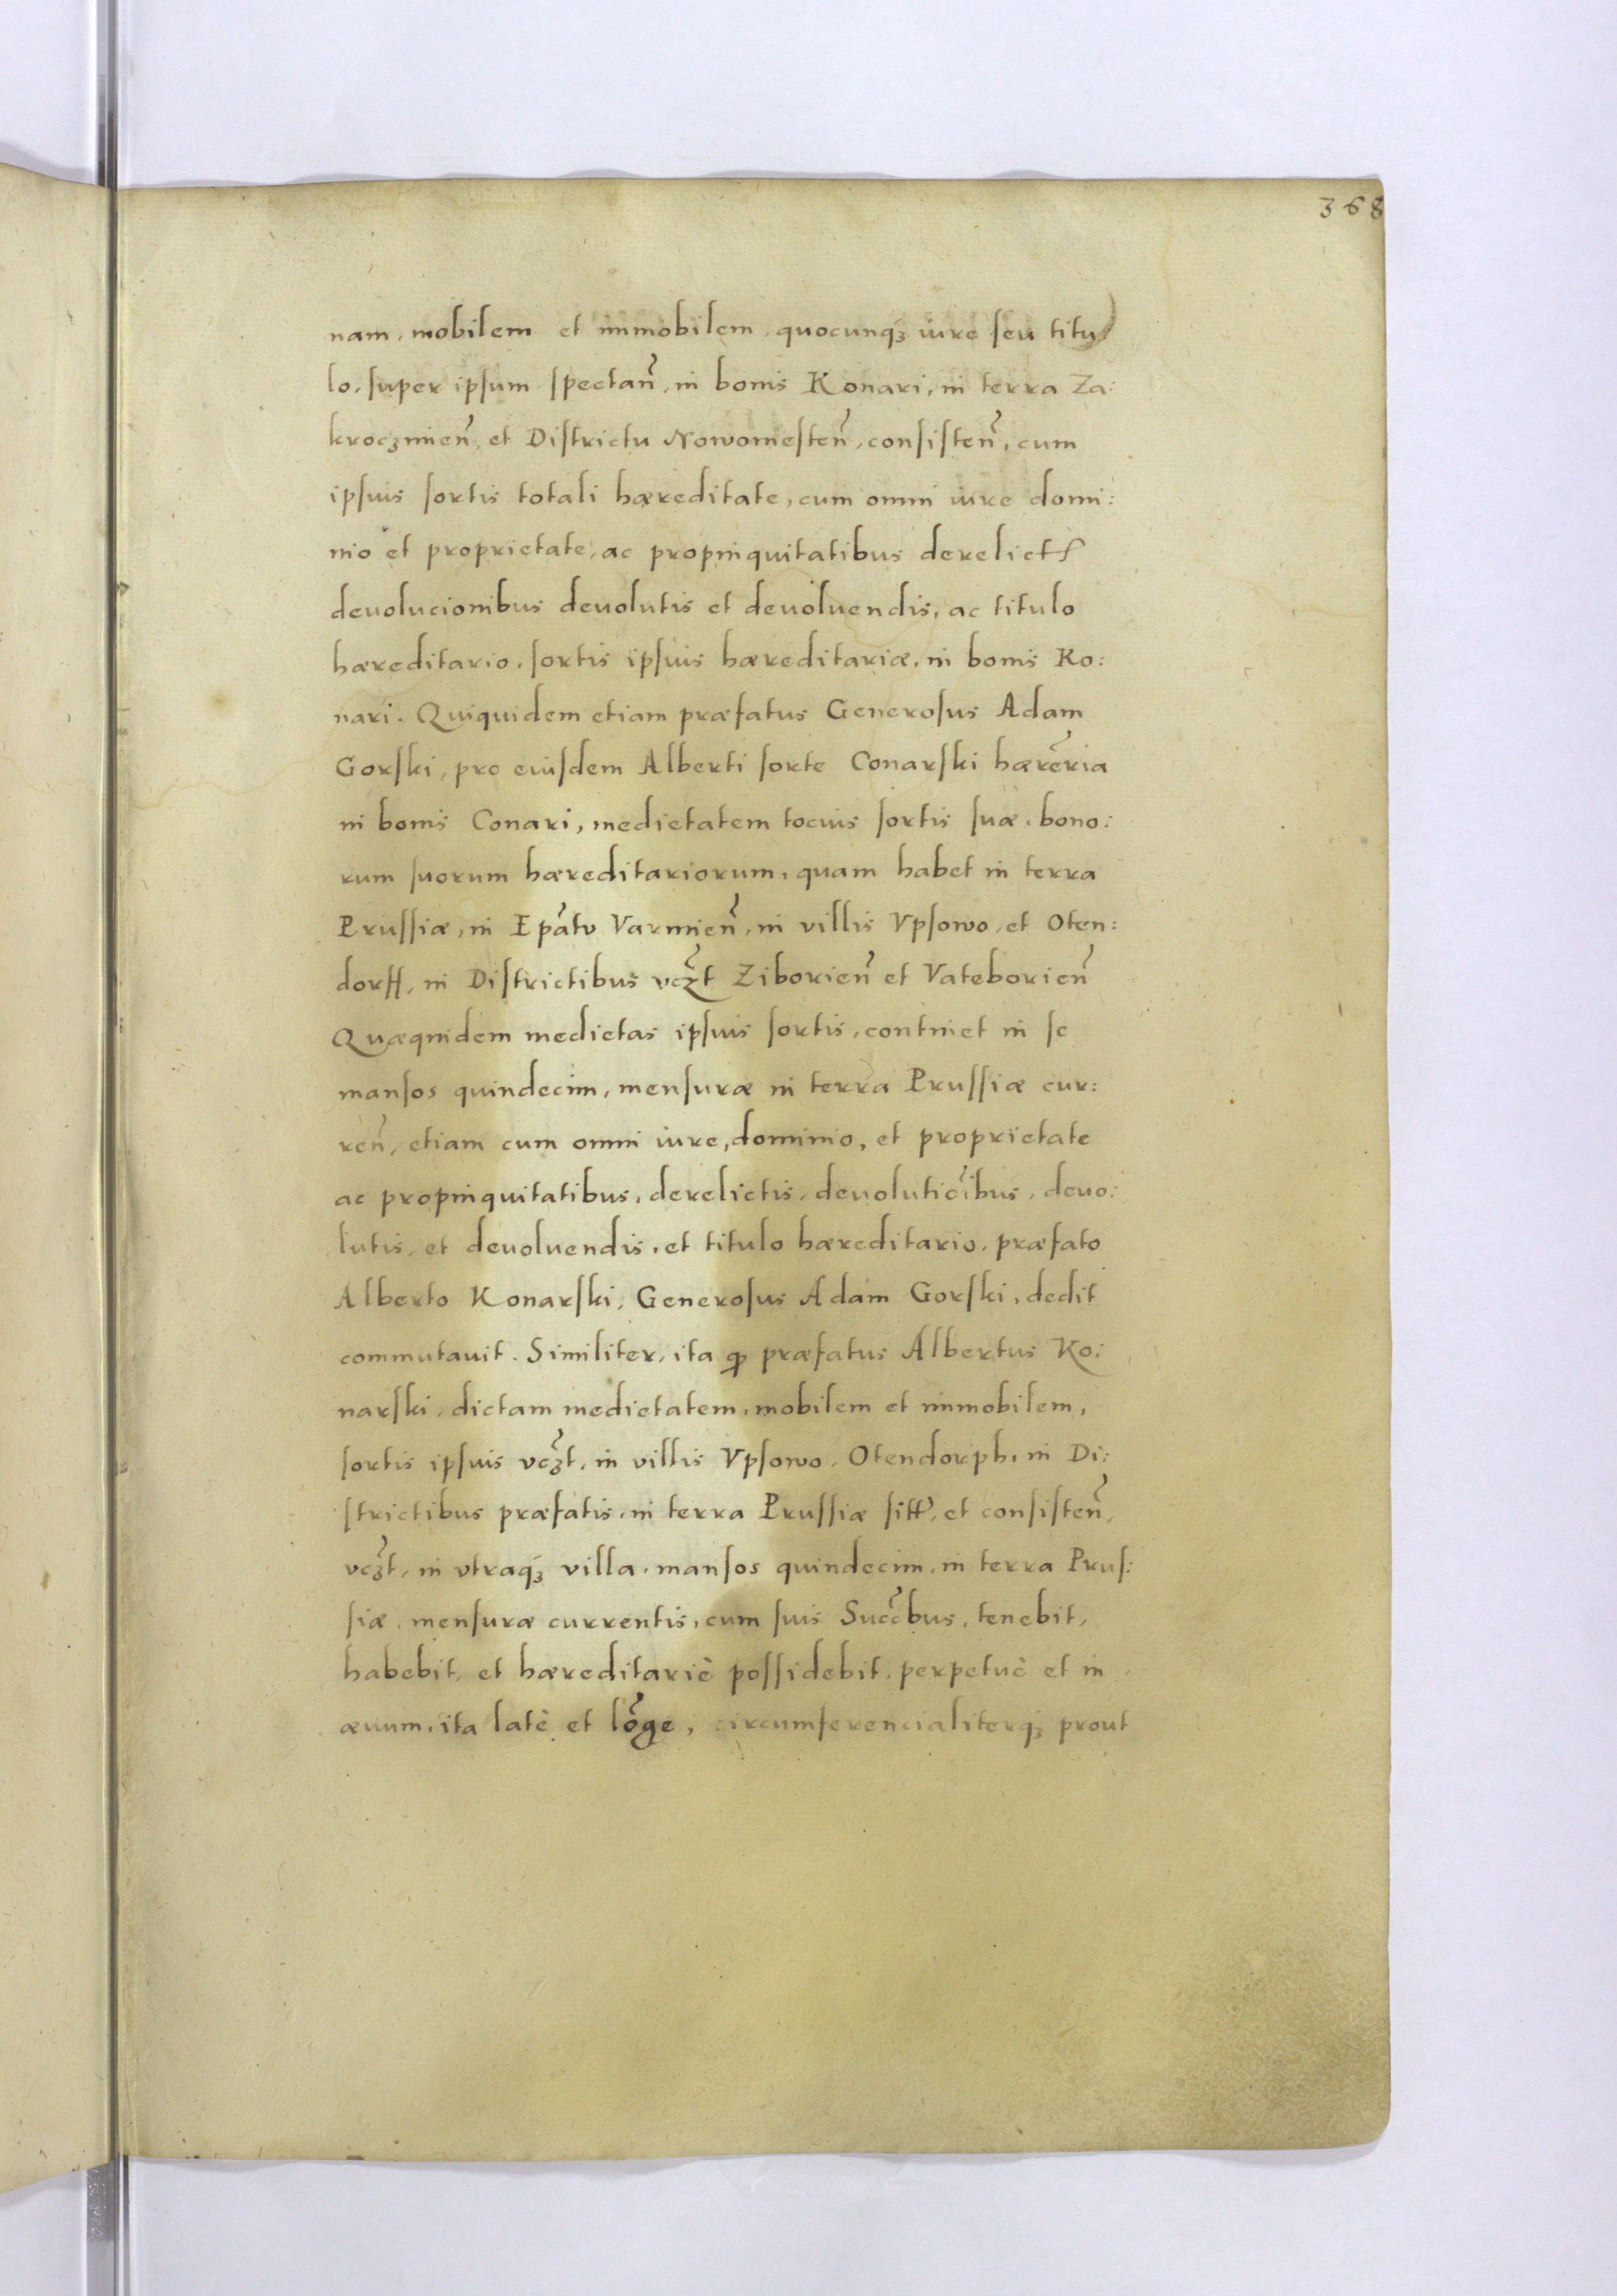 368
nam, mobilem et immobilem, quocunqꝫ iure ſeu titu
lo, ſuper ipſum ſpectañ, in bonis Konari, in terra Za:
kroczmieñ, et Diſtrictu Nowomeſteñ, conſiſteñ, cum
ipſius ſortis totali hæreditate, cum omni iure domi:
nio et proprietate, ac propinquitatibus derelict
deuolucionibus deuolutis et deuoluendis, ac titulo
hæreditario, ſortis ipſius hæreditariæ, in bonis Ko:
nari. Quiquidem etiam præfatus Generoſus Adam
Gorſki, pro eiuſdem Alberti ſorte Conarſki hærẽria
in bonis Conari, medietatem tocius ſortis ſuæ, bono:
rum ſuorum hæreditariorum, quam habet in terra
Pruſſiæ, in Epãtu Varmieñ, in villis Vpſowo, et Oten:
dorff, in Diſtrictibus vcꝫ̃t Ziborieñ et Vateborieñ
Quæquidem medietas ipſius ſortis, continet in ſe
manſos quindecim, menſuræ in terra Pruſſiæ cur:
reñ, etiam cum omni iure, dominio, et proprietate
ac propinquitatibus, derelictis, deuoluticĩbus, deuo:
lutis, et deuoluendis, et titulo hæreditario, præfato
Alberto Konarſki, Generoſus Adam Gorſki, dedit
commutauit. Similiter, ita ꝙ præfatus Albertus Ko:
narſki, dictam medietatem, mobilem et immobilem,
ſortis ipſius vcꝫ̃t, in villis Vpſowo, Otendorph, in Di:
ſtrictibus præfatis, in terra Pruſſiæ ſitt, et conſiſteñ,
vcꝫ̃t, in vtraqꝫ villa, manſos quindecim, in terra Pruſ:
ſiæ, menſuræ currentis, cum ſuis Succ̃bus, tenebit,
habebit, et hæreditariè poſſidebit, perpetuè et in
æuum, ita latè et lõge, circumferencialiterqꝫ prout